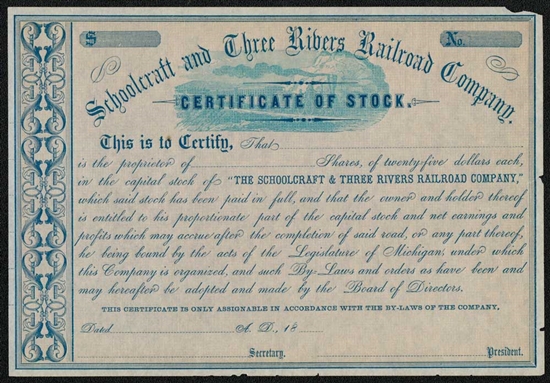 $ No.
Schoolcraft and Three Rivers Railroad Company.
CERTIFICATE OF STOCK.
This is to Certify, That
is the proprietor of Shares, of twenty-five dollars each,
in the capital stock of "THE SCHOOLCRAFT & THREE RIVERS RAILROAD COMPANY,"
which said stock has been paid in full, and that the owner and holder thereof
is entitled to his proportionate part of the capital stock and net earnings and
profits which may accrue after the completion of said road, or any part thereof,
he being bound by the acts of the Legislature of Michigan, under which
this Company is organized, and such By-Laws and orders as have been and
may hereafter be adopted and made by the Board of Directors.
THIS CERTIFICATE IS ONLY ASSIGNABLE IN ACCORDANCE WITH THE BY-LAWS OF THE COMPANY.
Dated A. D., 18
Secretary. President.